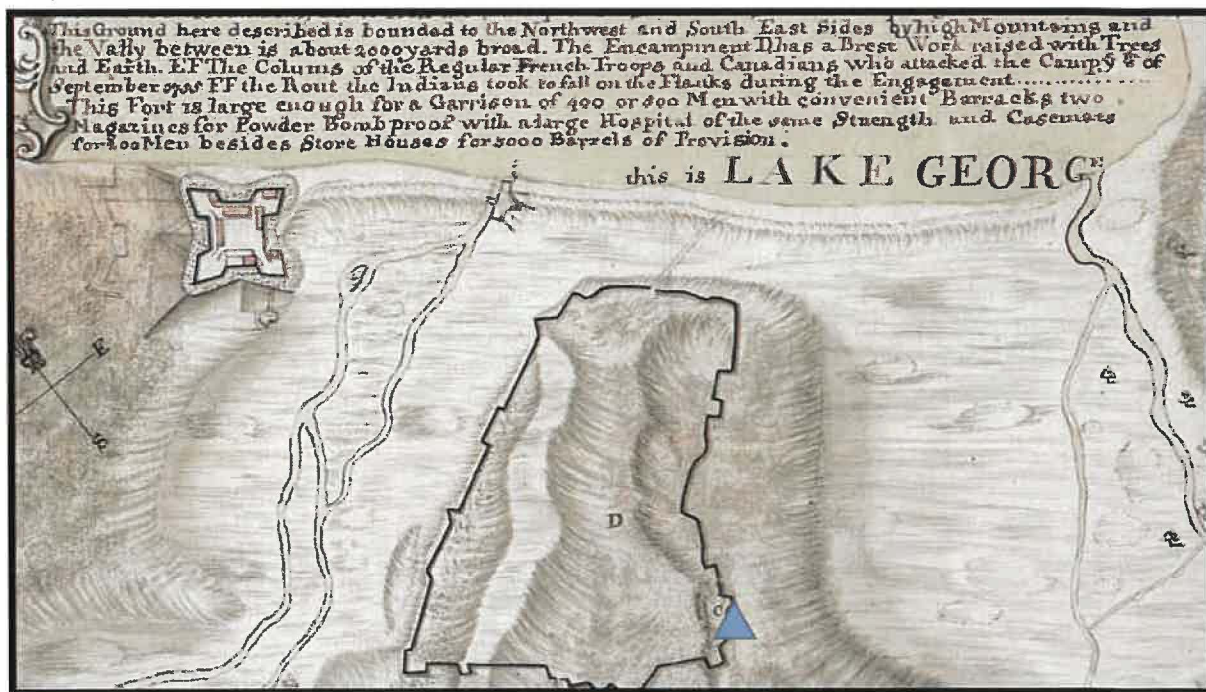 This Ground here described is bounded to the Northwest and South East Sides by high Mountains and
the Vally between is about 2000 yards broad. The Encampment D has a Brest Work raised with Trees
and Earth. EF The Colums of the Regular French Troops and Canadians who attacked the Camp ẙ 8 of
September FF the Rout the Indians took to fall on the Flanks during the Engagement..............
This Fort is large enough for a Garrison of 400 or 500 Men with convenient Barracks two
Magazines for Powder Bomb proof with a large Hospital of the same Strength and Casemats
for 200 Men besides Store Houses for 5000 Barrels of Provision.
this is LAKE GEORGE
E
S
D
C